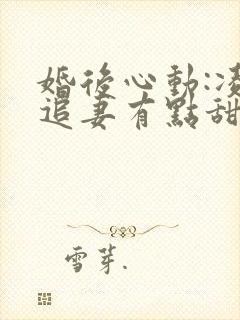 婚後心動:
追妻有點甜
雪芽.